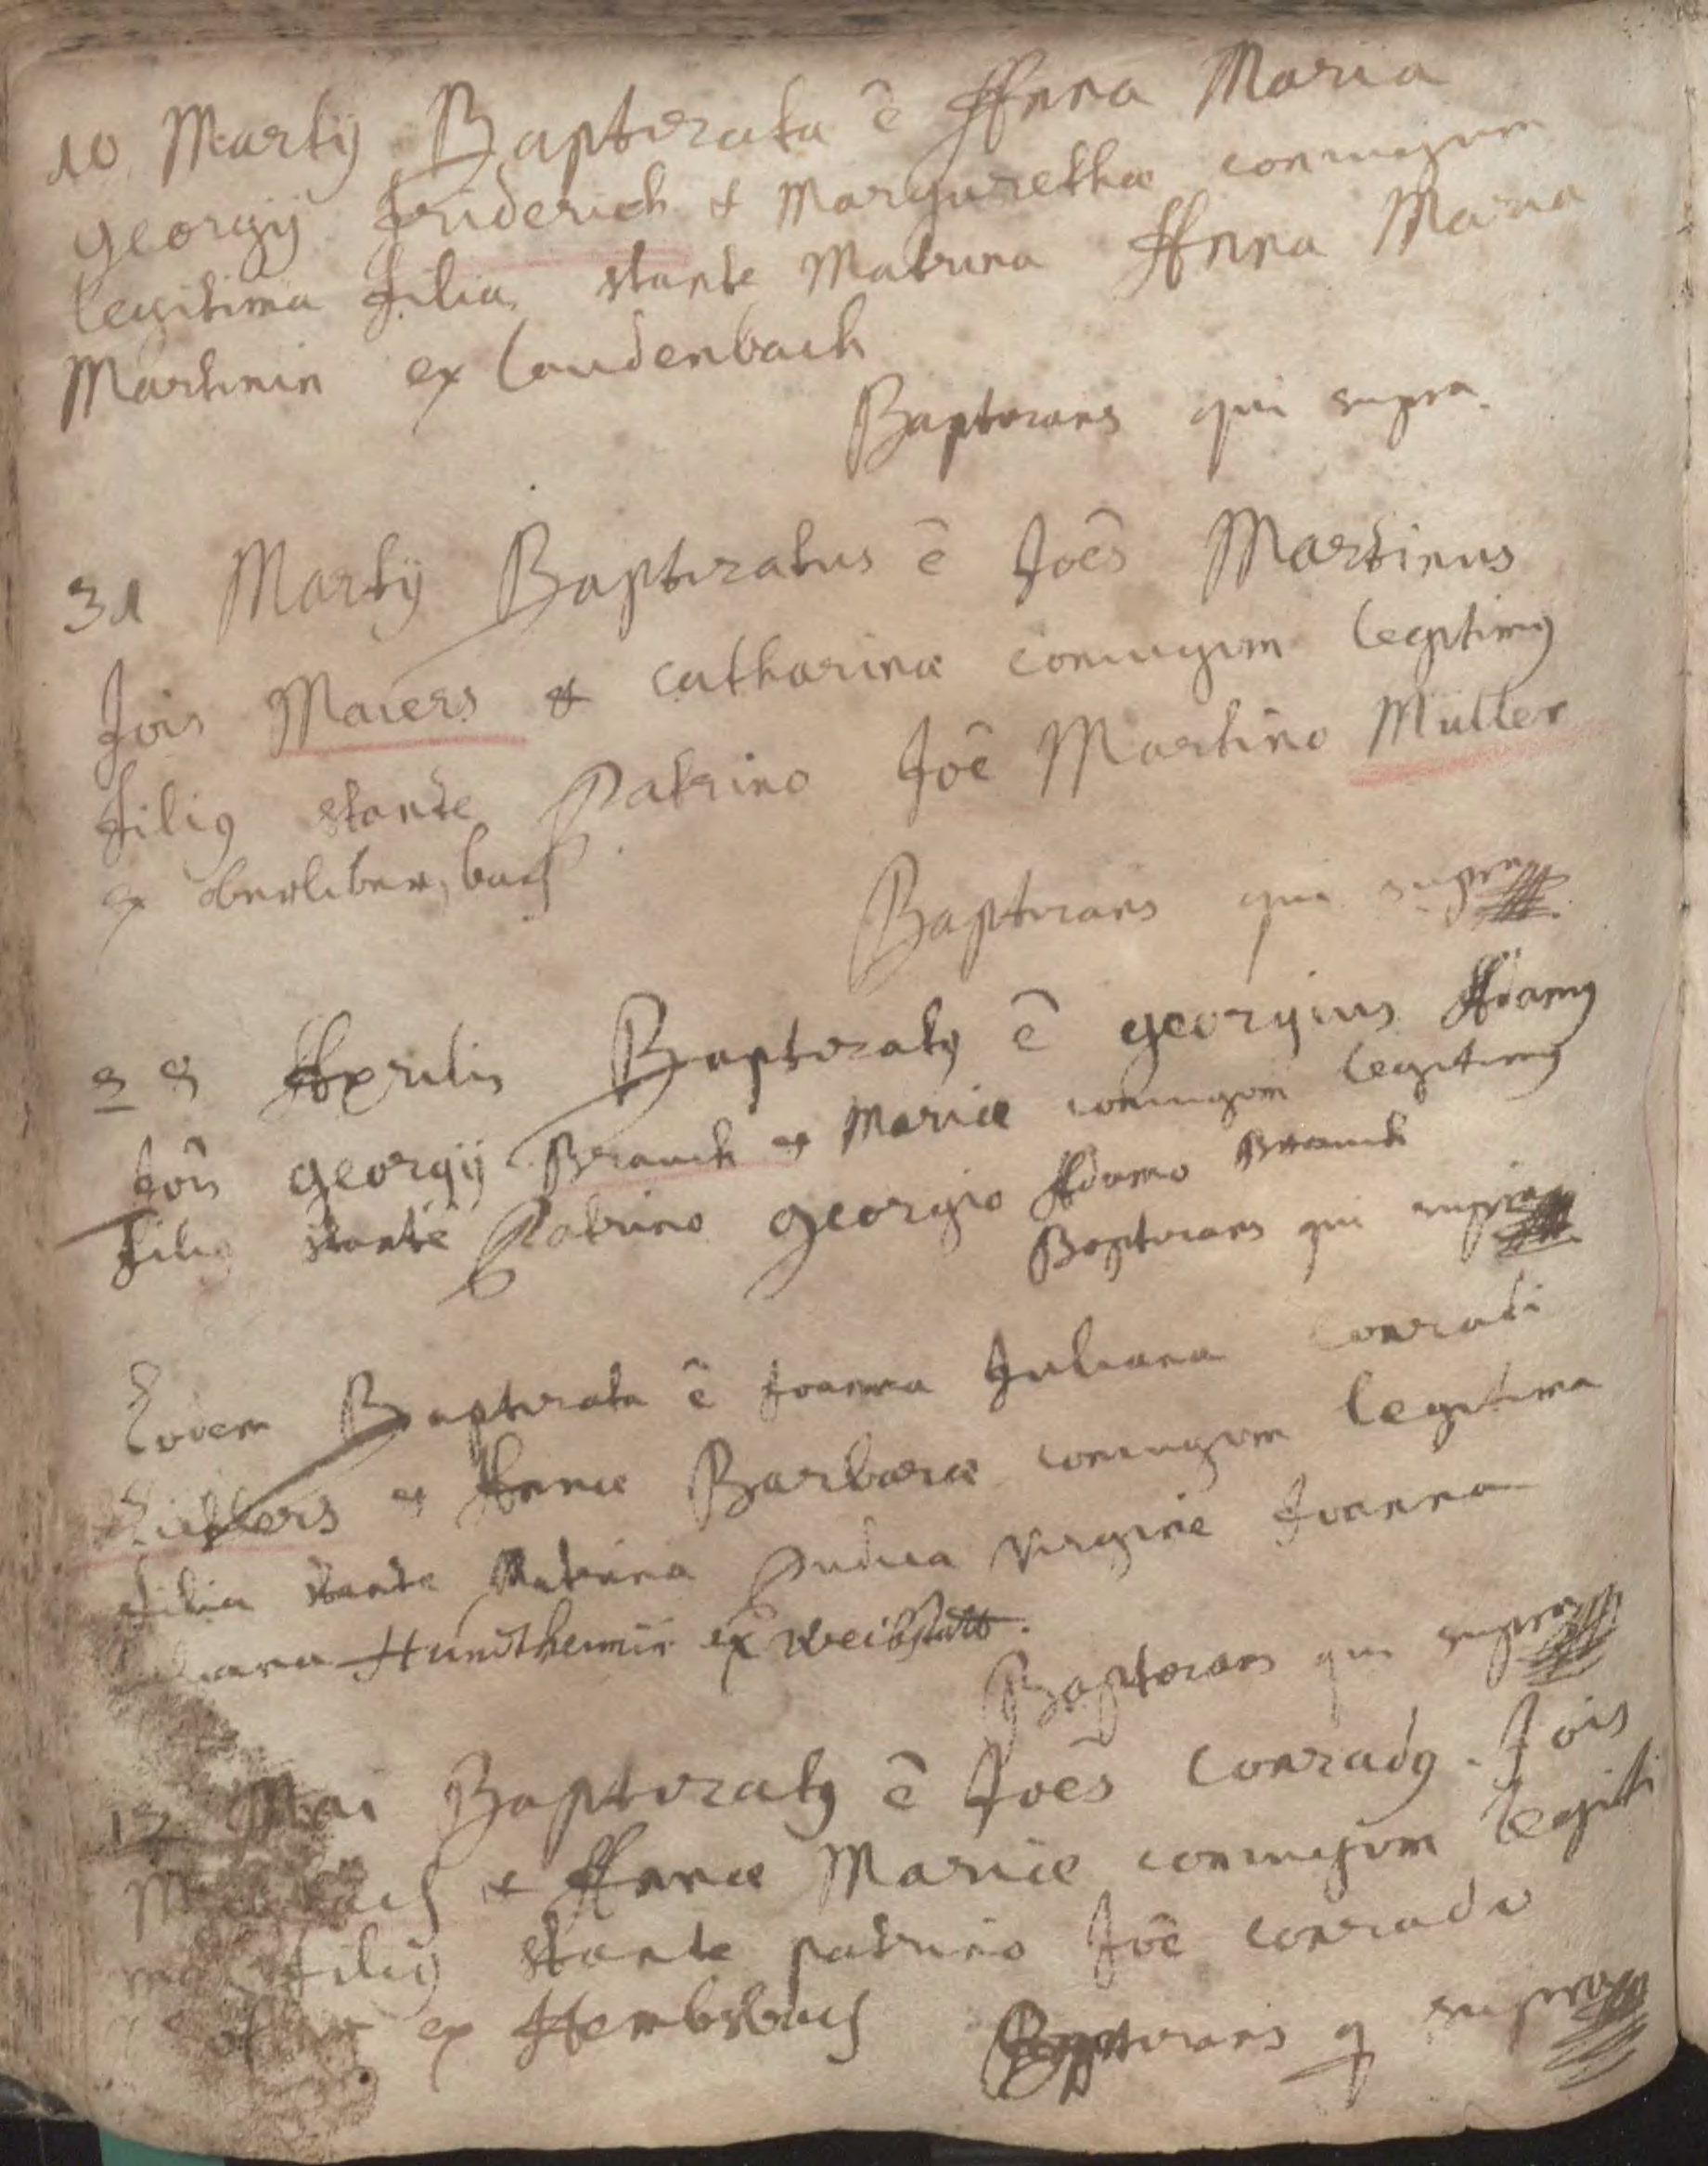 10 Martij Baptizata ē Anna Maria
georgij Friderich & Margarethæ coniugum
legitima filia stante Matrina Anna Maria
Martinin ex laudenbach
Baptizans qui supra.
31 Martij Baptizatus ē Joēs Martinus
Jois Maiers & catharinæ coniugum legitimꝰ
filiꝰ stante Patrino Joē Martino Müller
ex oberliber,bach
Baptizans qui supra
28 Aprilis Baptizatꝰ ē georgius Adamꝰ
Jois georgij Brauch & Mariæ coniugum legitimꝰ
filiꝰ stante Patrino georgio Adamo Brauch
Baptizans qui supra
Eodem Baptizata ē Joanna Juliana conradi
& Annæ Barbaræ coniugum legitima
filia stante Matrina Pudica virgine Joanna
Hundtheimin ex
Baptizans qui supra
Mai Baptizatꝰ ē Joēs conradꝰ Jois
& Annæ Mariæ coniugum legiti
filiꝰ stante patrino Joē conrado
ex Hembsbach Baptizans q supra